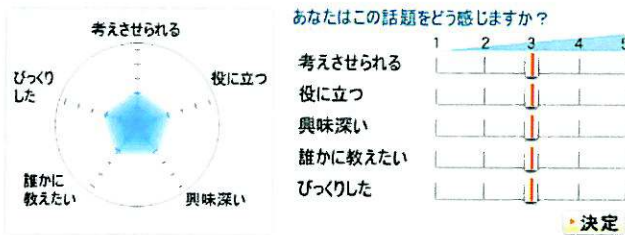 考えさせられる
役に立つ
興味深い
誰かに
教えたい
びっくり
した
あなたはこの話題をどう感じますか?
1 2 3 4 5
考えさせられる
役に立つ
興味深い
誰かに教えたい
びっくりした
決定